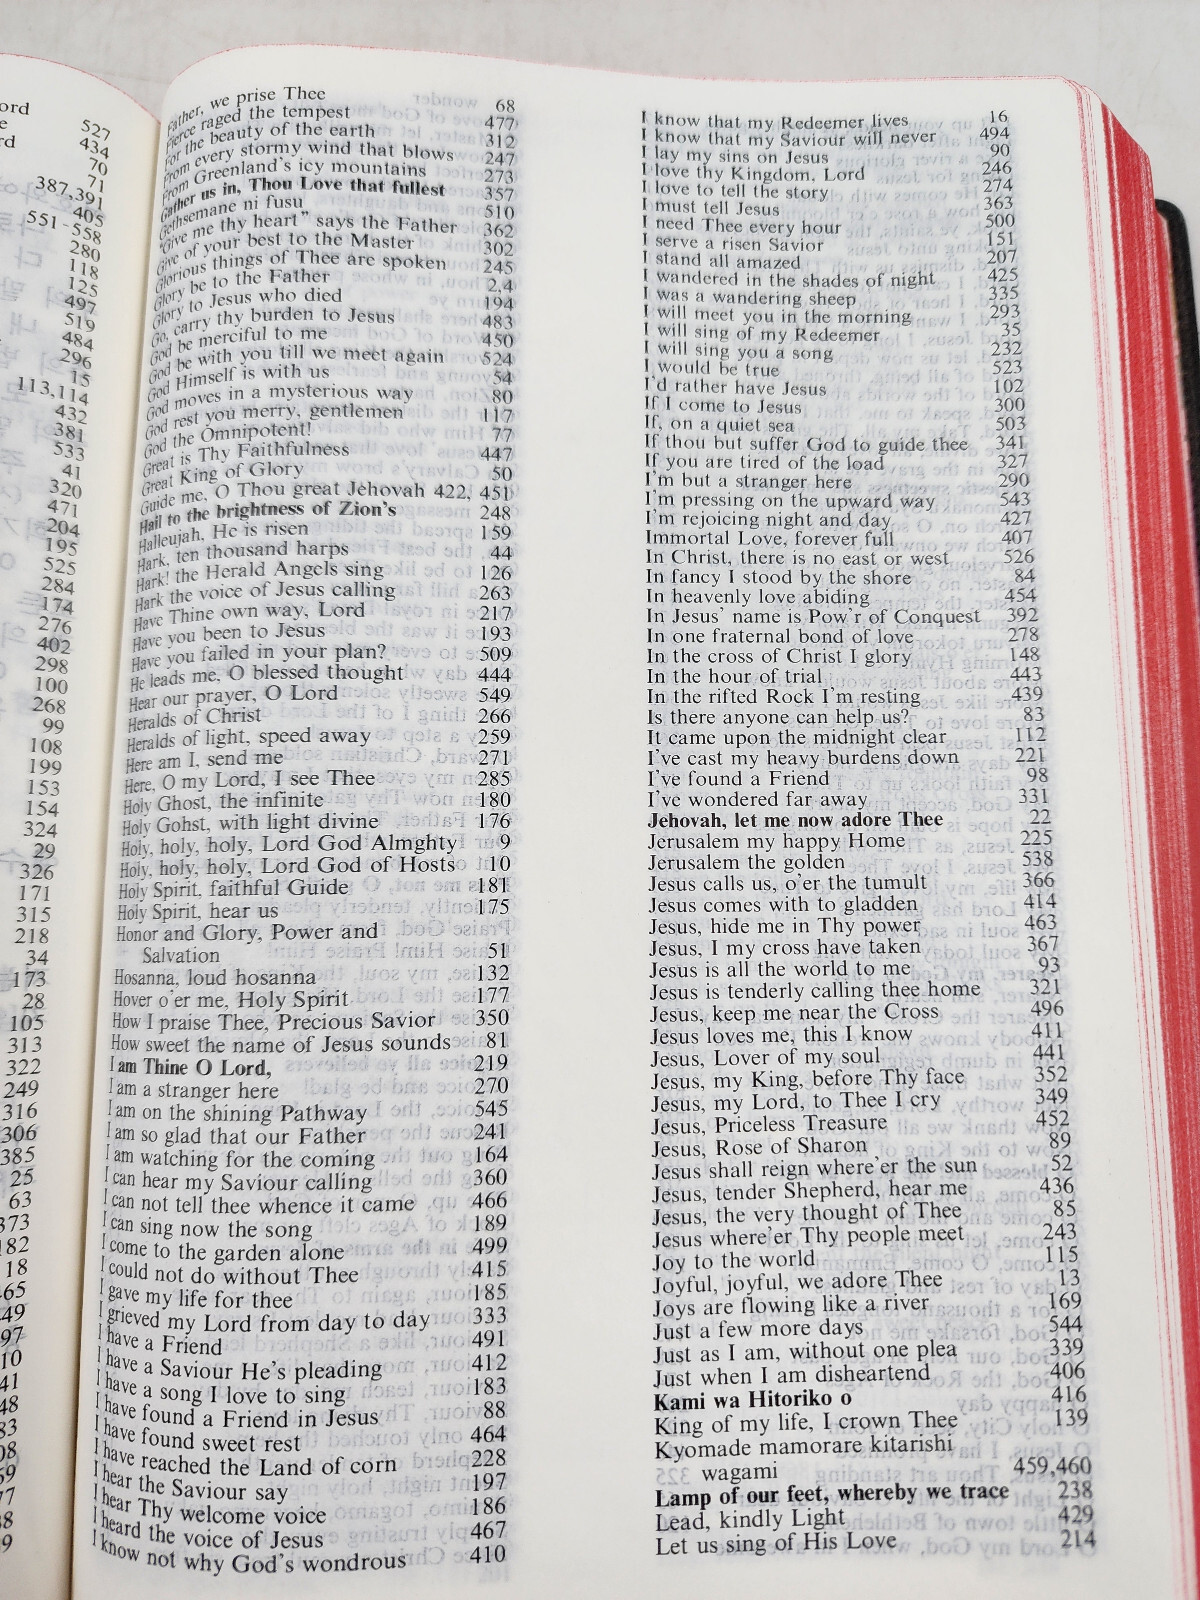 ord
e
rd
527
434
70
71
387,391
405
551-558
280
118
125
497
519
484
296
15
113,114
432
381
533
41
320
471
204
195
525
284
174
276
402
298
100
268
99
108
199
153
154
324
29
326
171
315
218
34
173
28
105
313
322
249
316
306
385
25
63
373
182
18
65
49
97
10
41
48
83
08
59
77
8
9
Father, we prise Thee 68
Fierce raged the tempest 477
For the beauty of the earth 312
From every stormy wind that blows 247
From Greenland's icy mountains 273
Gather us in, Thou Love that fullest 357
Gethsemane ni fusu 510
"Give me thy heart" says the Father 362
Give of your best to the Master 302
Glorious things of Thee are spoken 245
Glory be to the Father 2,4
Glory to Jesus who died 194
Go, carry thy burden to Jesus 483
God be merciful to me 450
God be with you till we meet again 524
God Himself is with us 54
God moves in a mysterious way 80
God rest you merry, gentlemen 117
God the Omnipotent! 77
Great is Thy Faithfulness 447
Great King of Glory 50
Guide me, O Thou great Jehovah 422, 451
Hail to the brightness of Zion's 248
Halleujah, He is risen 159
Hark, ten thousand harps 44
Hark! the Herald Angels sing 126
Hark the voice of Jesus calling 263
Have Thine own way, Lord 217
Have you been to Jesus 193
Have you failed in your plan? 509
He leads me, O blessed thought 444
Hear our prayer, O Lord 549
Heralds of Christ 266
Heralds of light, speed away 259
Here am I, send me 271
Here, O my Lord, I see Thee 285
Holy Ghost, the infinite 180
Holy Gohst, with light divine 176
Holy, holy, holy, Lord God Almghty 9
Holy, holy, holy, Lord God of Hosts 10
Holy Spirit, faithful Guide 181
Holy Spirit, hear us 175
Honor and Glory, Power and
Salvation 51
Hosanna, loud hosanna 132
Hover o'er me, Holy Spirit 177
How I praise Thee, Precious Savior 350
How sweet the name of Jesus sounds 81
I am Thine O Lord, 219
I am a stranger here 270
I am on the shining Pathway 545
I am so glad that our Father 241
I am watching for the coming 164
I can hear my Saviour calling 360
I can not tell thee whence it came 466
I can sing now the song 189
I come to the garden alone 499
I could not do without Thee 415
I gave my life for thee 185
I grieved my Lord from day to day 333
I have a Friend 491
I have a Saviour He's pleading 412
I have a song I love to sing 183
I have found a Friend in Jesus 88
I have found sweet rest 464
I have reached the Land of corn 228
I hear the Saviour say 197
I hear Thy welcome voice 186
I heard the voice of Jesus 467
I know not why God's wondrous 410
I know that my Redeemer lives 16
I know that my Saviour will never 494
I lay my sins on Jesus 90
I love thy Kingdom, Lord 246
I love to tell the story 274
I must tell Jesus 363
I need Thee every hour 500
I serve a risen Savior 151
I stand all amazed 207
I wandered in the shades of night 425
I was a wandering sheep 335
I will meet you in the morning 293
I will sing of my Redeemer 35
I will sing you a song 232
I would be true 523
I'd rather have Jesus 102
If I come to Jesus 300
If, on a quiet sea 503
If thou but suffer God to guide thee 341
If you are tired of the load 327
I'm but a stranger here 290
I'm pressing on the upward way 543
I'm rejoicing night and day 427
Immortal Love, forever full 407
In Christ, there is no east or west 526
In fancy I stood by the shore 84
In heavenly love abiding 454
In Jesus' name is Pow'r of Conquest 392
In one fraternal bond of love 278
In the cross of Christ I glory 148
In the hour of trial 443
In the rifted Rock I'm resting 439
Is there anyone can help us? 83
It came upon the midnight clear 112
I've cast my heavy burdens down 221
I've found a Friend 98
I've wondered far away 331
Jehovah, let me now adore Thee 22
Jerusalem my happy Home 225
Jerusalem the golden 538
Jesus calls us, o'er the tumult 366
Jesus comes with to gladden 414
Jesus, hide me in Thy power 463
Jesus, I my cross have taken 367
Jesus is all the world to me 93
Jesus is tenderly calling thee home 321
Jesus, keep me near the Cross 496
Jesus loves me, this I know 411
Jesus, Lover of my soul 441
Jesus, my King, before Thy face 352
Jesus, my Lord, to Thee I cry 349
Jesus, Priceless Treasure 452
Jesus, Rose of Sharon 89
Jesus shall reign where'er the sun 52
Jesus, tender Shepherd, hear me 436
Jesus, the very thought of Thee 85
Jesus where'er Thy people meet 243
Joy to the world 115
Joyful, joyful, we adore Thee 13
Joys are flowing like a river 169
Just a few more days 544
Just as I am, without one plea 339
Just when I am disheartend 406
Kami wa Hitoriko o 416
King of my life, I crown Thee 139
Kyomade mamorare kitarishi
wagami 459,460
Lamp of our feet, whereby we trace 238
Lead, kindly Light 429
Let us sing of His Love 214